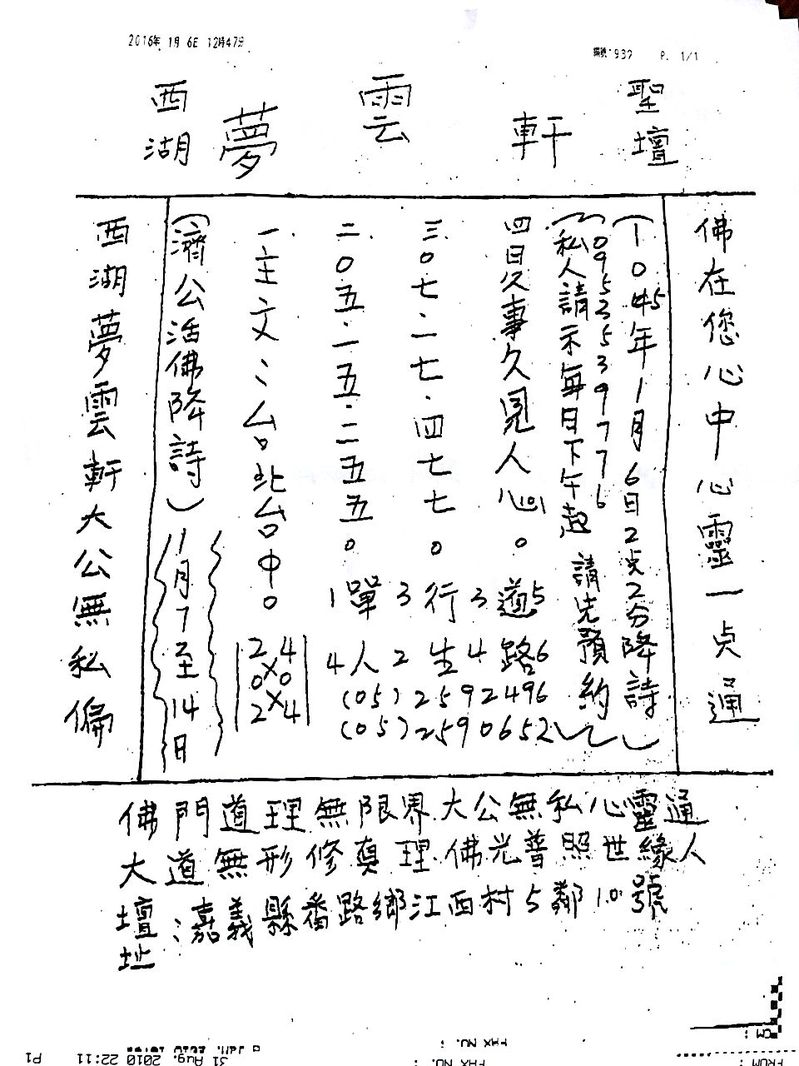 2016年 1月 6日 12時47分
編號:937 P. 1/1
西湖 夢 雲 軒 聖壇
佛在您心中心靈一点通
(1045年1月6日2点2分降詩)
0952539776
(私人請示每日下午起 請先預約)
四日久事久見人心(101)。
三0七.一七.四七七。
二0五.一五.二五五。
一主文:台北台中。
(濟公活佛降詩)
1月7至14日
西湖夢雲軒大公無私偏
1單3行3道5
4人2生4路6
(05)2592496
(05)2590652
2 4
0×0
2×4
佛門道理無限界大公無私心靈通
大道無形修真理佛光普照世緣人
壇址:嘉義縣番路鄉江西村5鄰10號
FROM :
FAX NO. :
FAX NO. :
31 Aug. 2010 22:11 P1